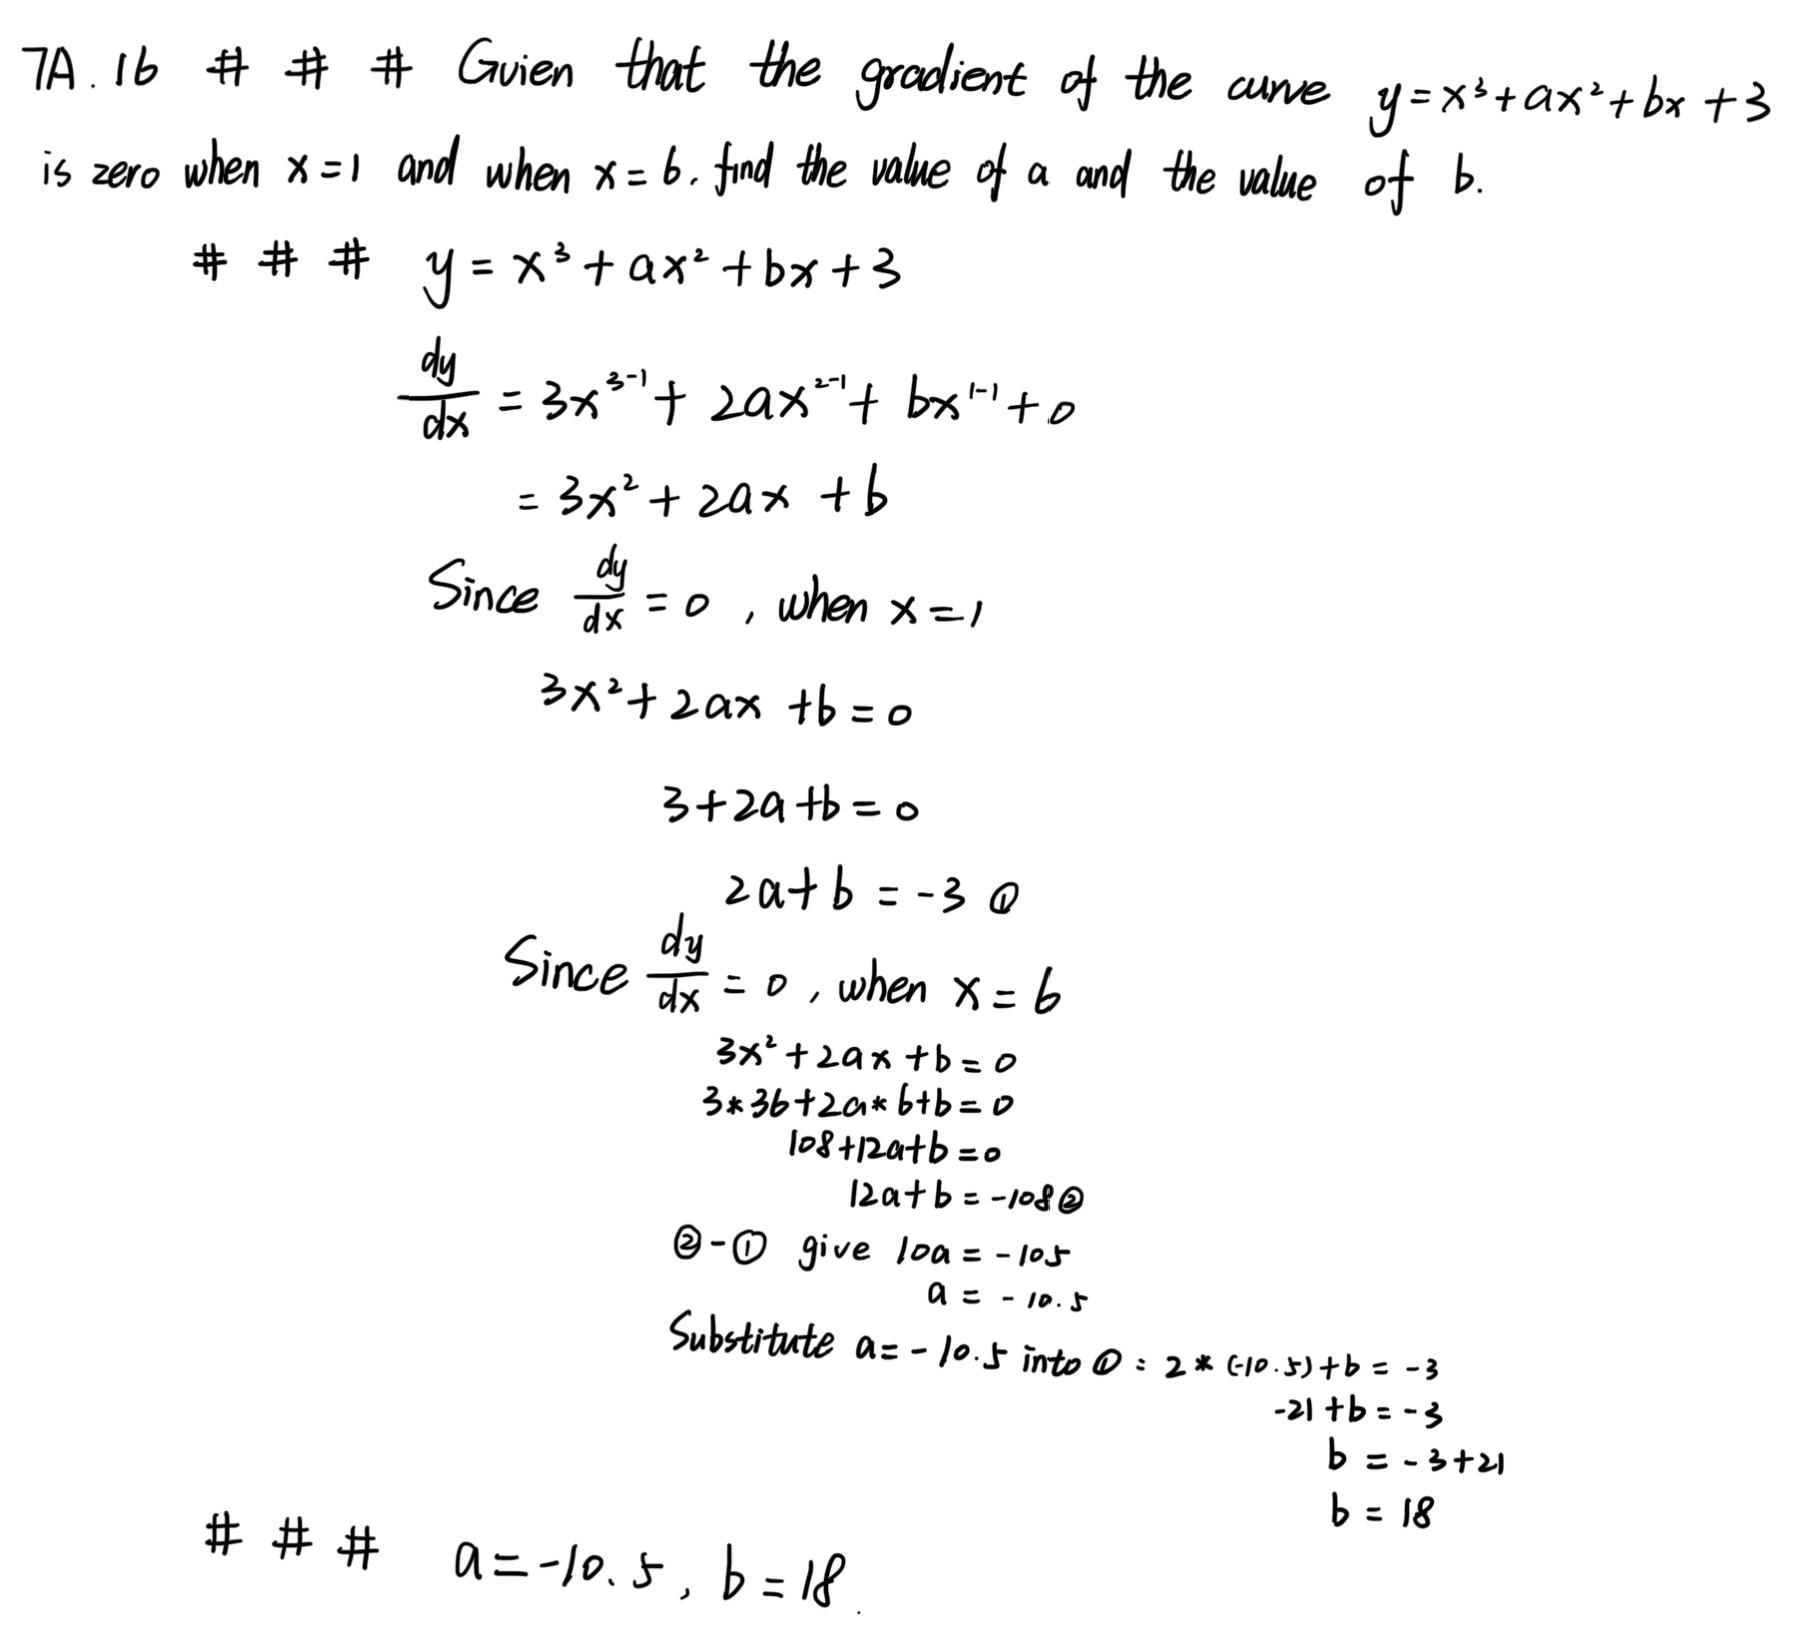 7A.16 # # # Guien that the gradient of the curve y=x³+ax²+bx+3
is zero when x=1 and when x=6. find the value of a and the value of b.
# # # y=x³+ax²+bx+3
dy/dx = 3x³⁻¹+2ax²⁻¹+bx¹⁻¹+0
=3x²+2ax+b
Since dy/dx=0, when x=1
3x²+2ax+b=0
3+2a+b=0
2a+b=-3 ①
Since dy/dx=0, when x=6
3x²+2ax+b=0
3*36+2a*6+b=0
108+12a+b=0
12a+b=-108②
②-① give 10a=-105
a=-10.5
Substitute a=-10.5 into ①: 2*(-10.5)+b=-3
-21+b=-3
b=-3+21
b=18
# # # a=-10.5, b=18.